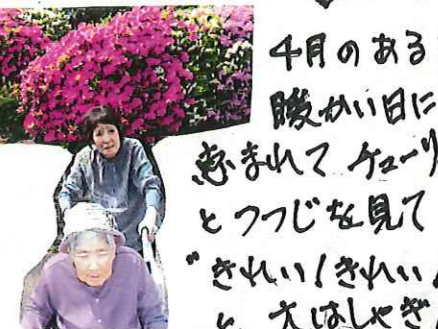 4月のある
暖かい日に
恵まれて チューリ
とつつじを見て
"きれい!きれい!
と、大はしゃぎ